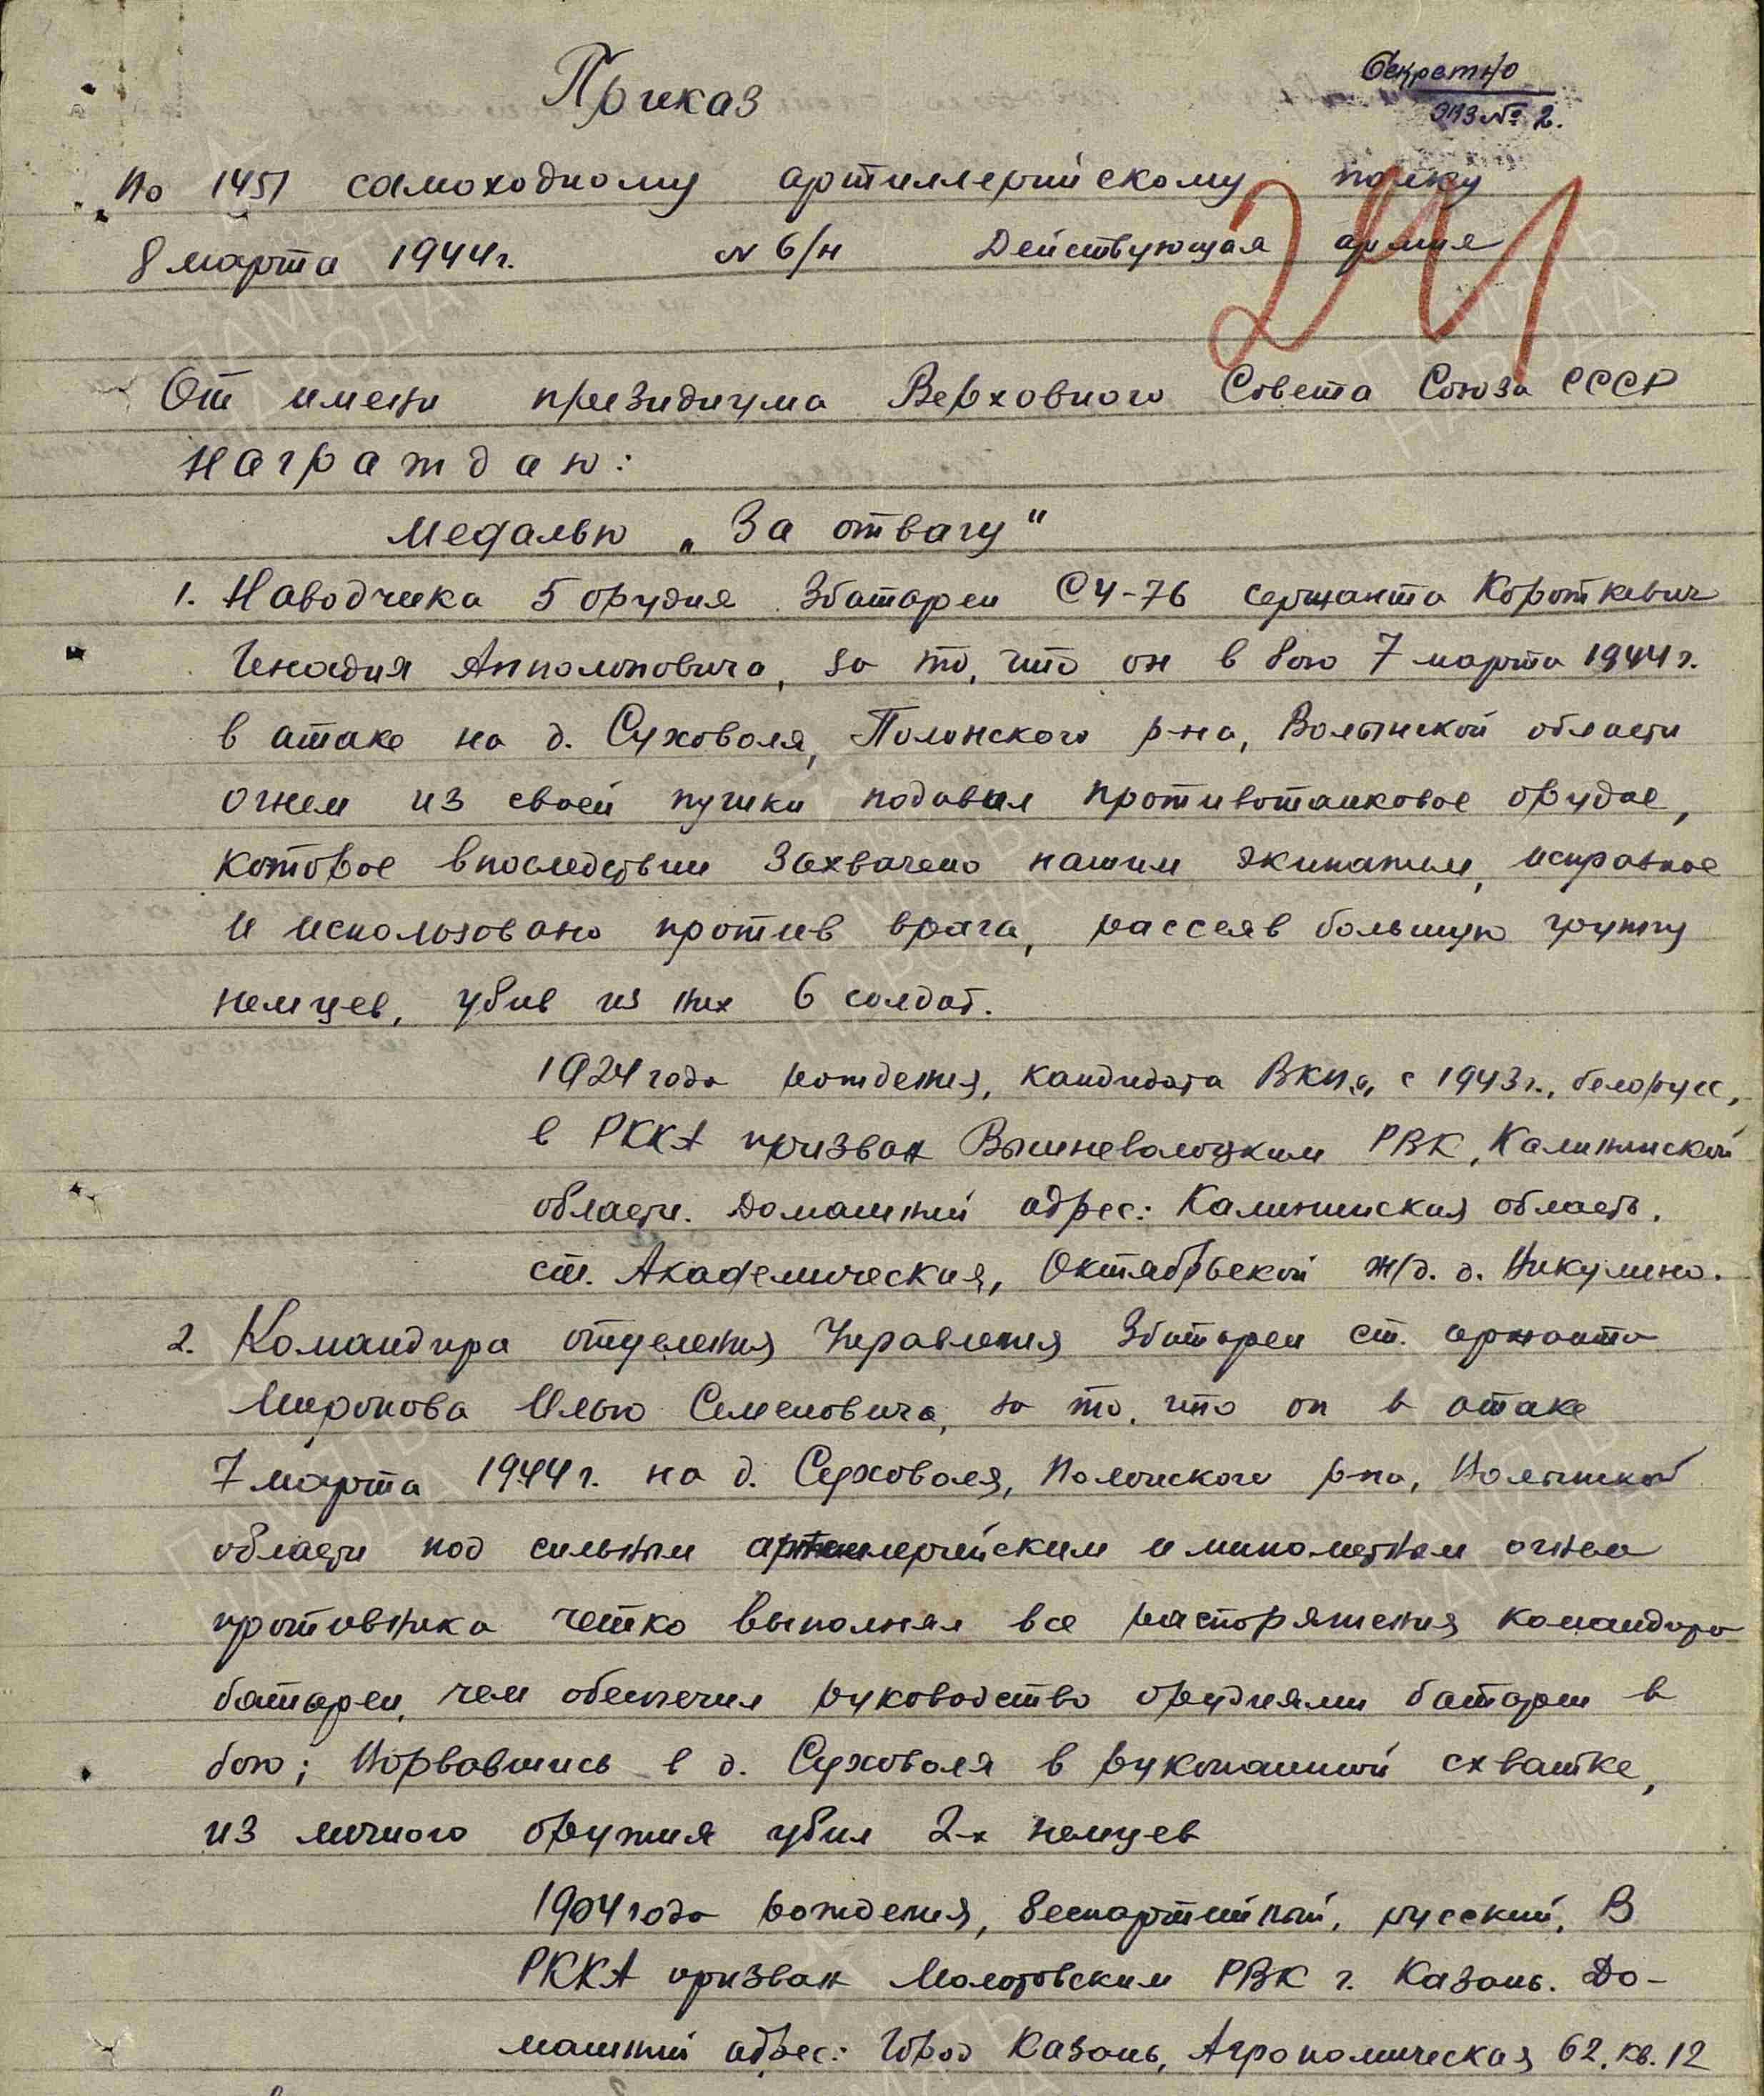 Приказ
Секретно
Экз № 2.
По 1451 самоходному артиллерийскому полку
8 марта 1944г. № б/н Действующая армия
241
От имени президиума Верховного Совета Союза ССР
Награждаю:
Медалью „За отвагу"
1. Наводчика 5 орудия 3 батареи СУ-76 сержанта Короткевич
Генадия Апполоновича, за то, что он в бою 7 марта 1944г.
в атаке на д. Суховоля, Полонского р-на, Волынской области
огнем из своей пушки подавил противотанковое орудие,
которое впоследствии захвачено нашим экипажем, исправное
и использовано против врага, рассеяв большую группу
немцев, убив из них 6 солдат.
1924 года рождения, кандидата ВКП(б) с 1943г., белорусс,
в РККА призван Вышневолоцким РВК, Калининской
области. Домашний адрес: Калининская область,
ст. Академическая, Октябрьской ж/д. д. Никулино.
2. Командира отделения Управления 3 батареи ст. сержанта
Миронова Илью Семеновича, за то, что он в атаке
7 марта 1944г. на д. Суховоля, Полонского р-на, Волынской
области под сильным артиллерийским и минометным огнем
противника четко выполнял все распоряжения командира
батареи, чем обеспечил руководство орудиями батареи в
бою; Ворвавшись в д. Суховоля в рукопашной схватке,
из личного оружия убил 2-х немцев
1904 года рождения, беспартийный, русский, В
РККА призван Молотовским РВК г. Казань. До-
машний адрес: Город Казань, Агрономическая 62, кв. 12
ПАМЯТЬ НАРОДА